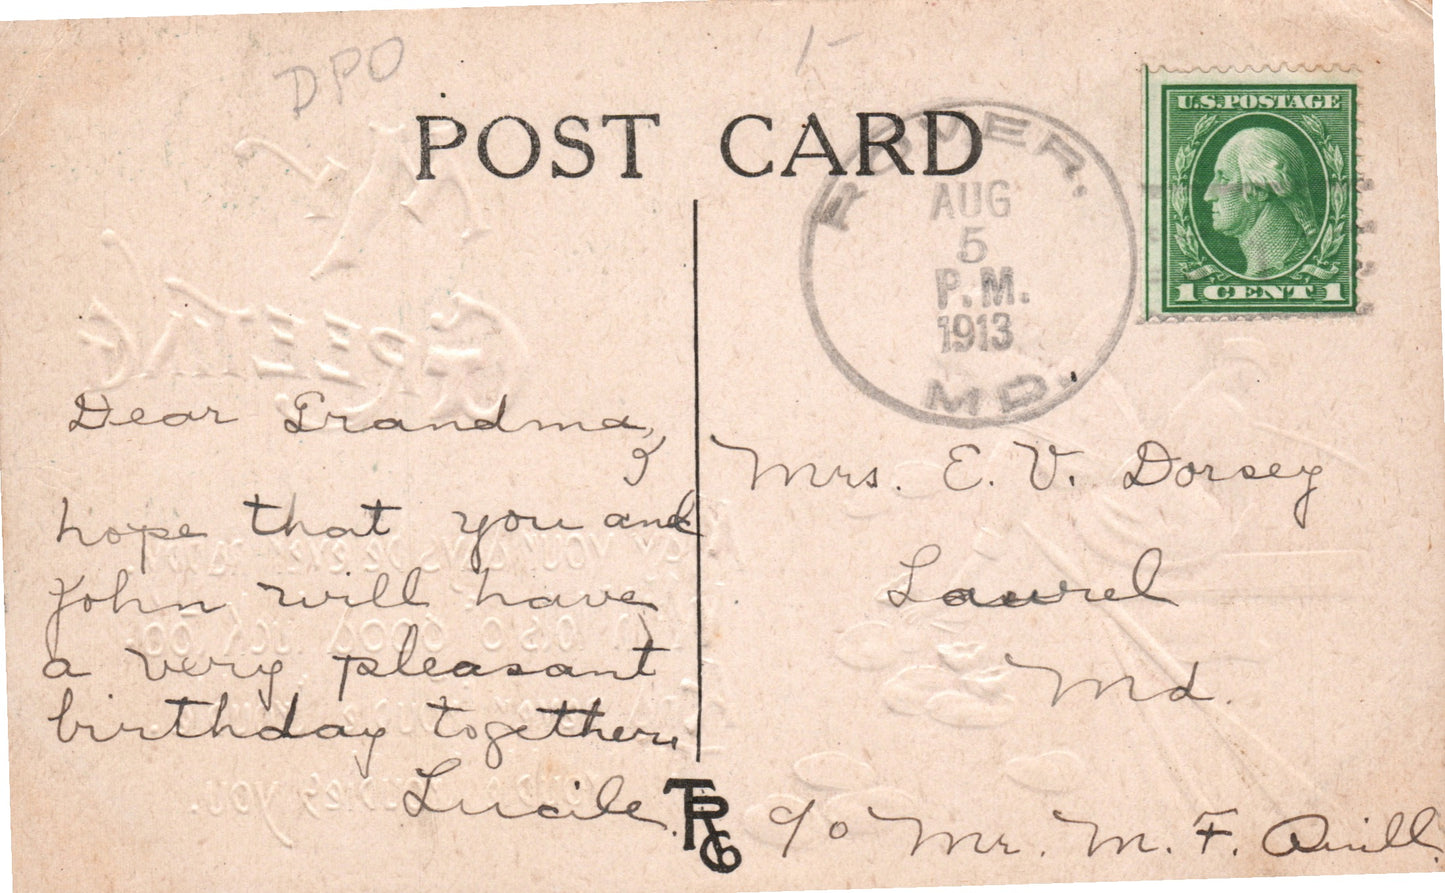 DPO
POST CARD
ROVER.
AUG
5
P.M.
1913
MD.
U.S.POSTAGE
1 CENT 1
Dear Grandma,
I
hope that you and
John will have
a very pleasant
birthday together.
Lucile.
TRCo
Mrs. E. V. Dorsey
Laurel
Md.
c/o Mr. M. F. Quill.